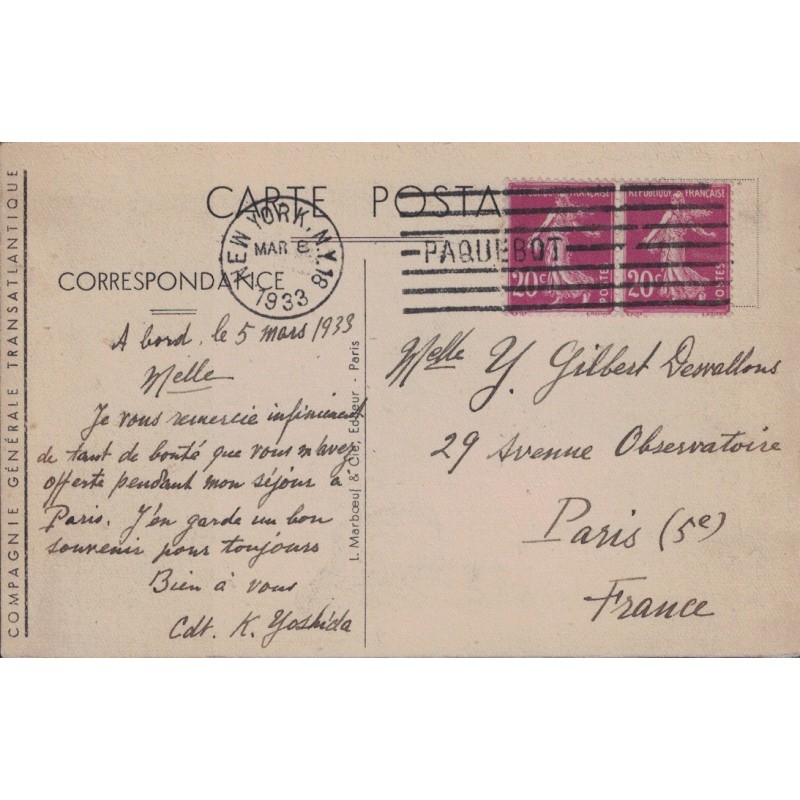 COMPAGNIE GÉNÉRALE TRANSATLANTIQUE
CARTE POSTA
NEW YORK, N.Y. 18
MAR 6
1933
PAQUEBOT
REPUBLIQUE FRANÇAISE
20c
POSTES
REPUBLIQUE FRANÇAISE
20c
POSTES
CORRESPONDANCE
A bord, le 5 mars 1933
Melle
Je vous remercie infiniment
de tant de bonté que vous m'avez
offerte pendant mon séjour à
Paris. J'en garde un bon
souvenir pour toujours
Bien à vous
Cdt. K. Yoshida
L. Marbœuf & Cie, Editeur - Paris
Melle Y. Gilbert Desvallons
29 Avenue Observatoire
Paris (5e)
France